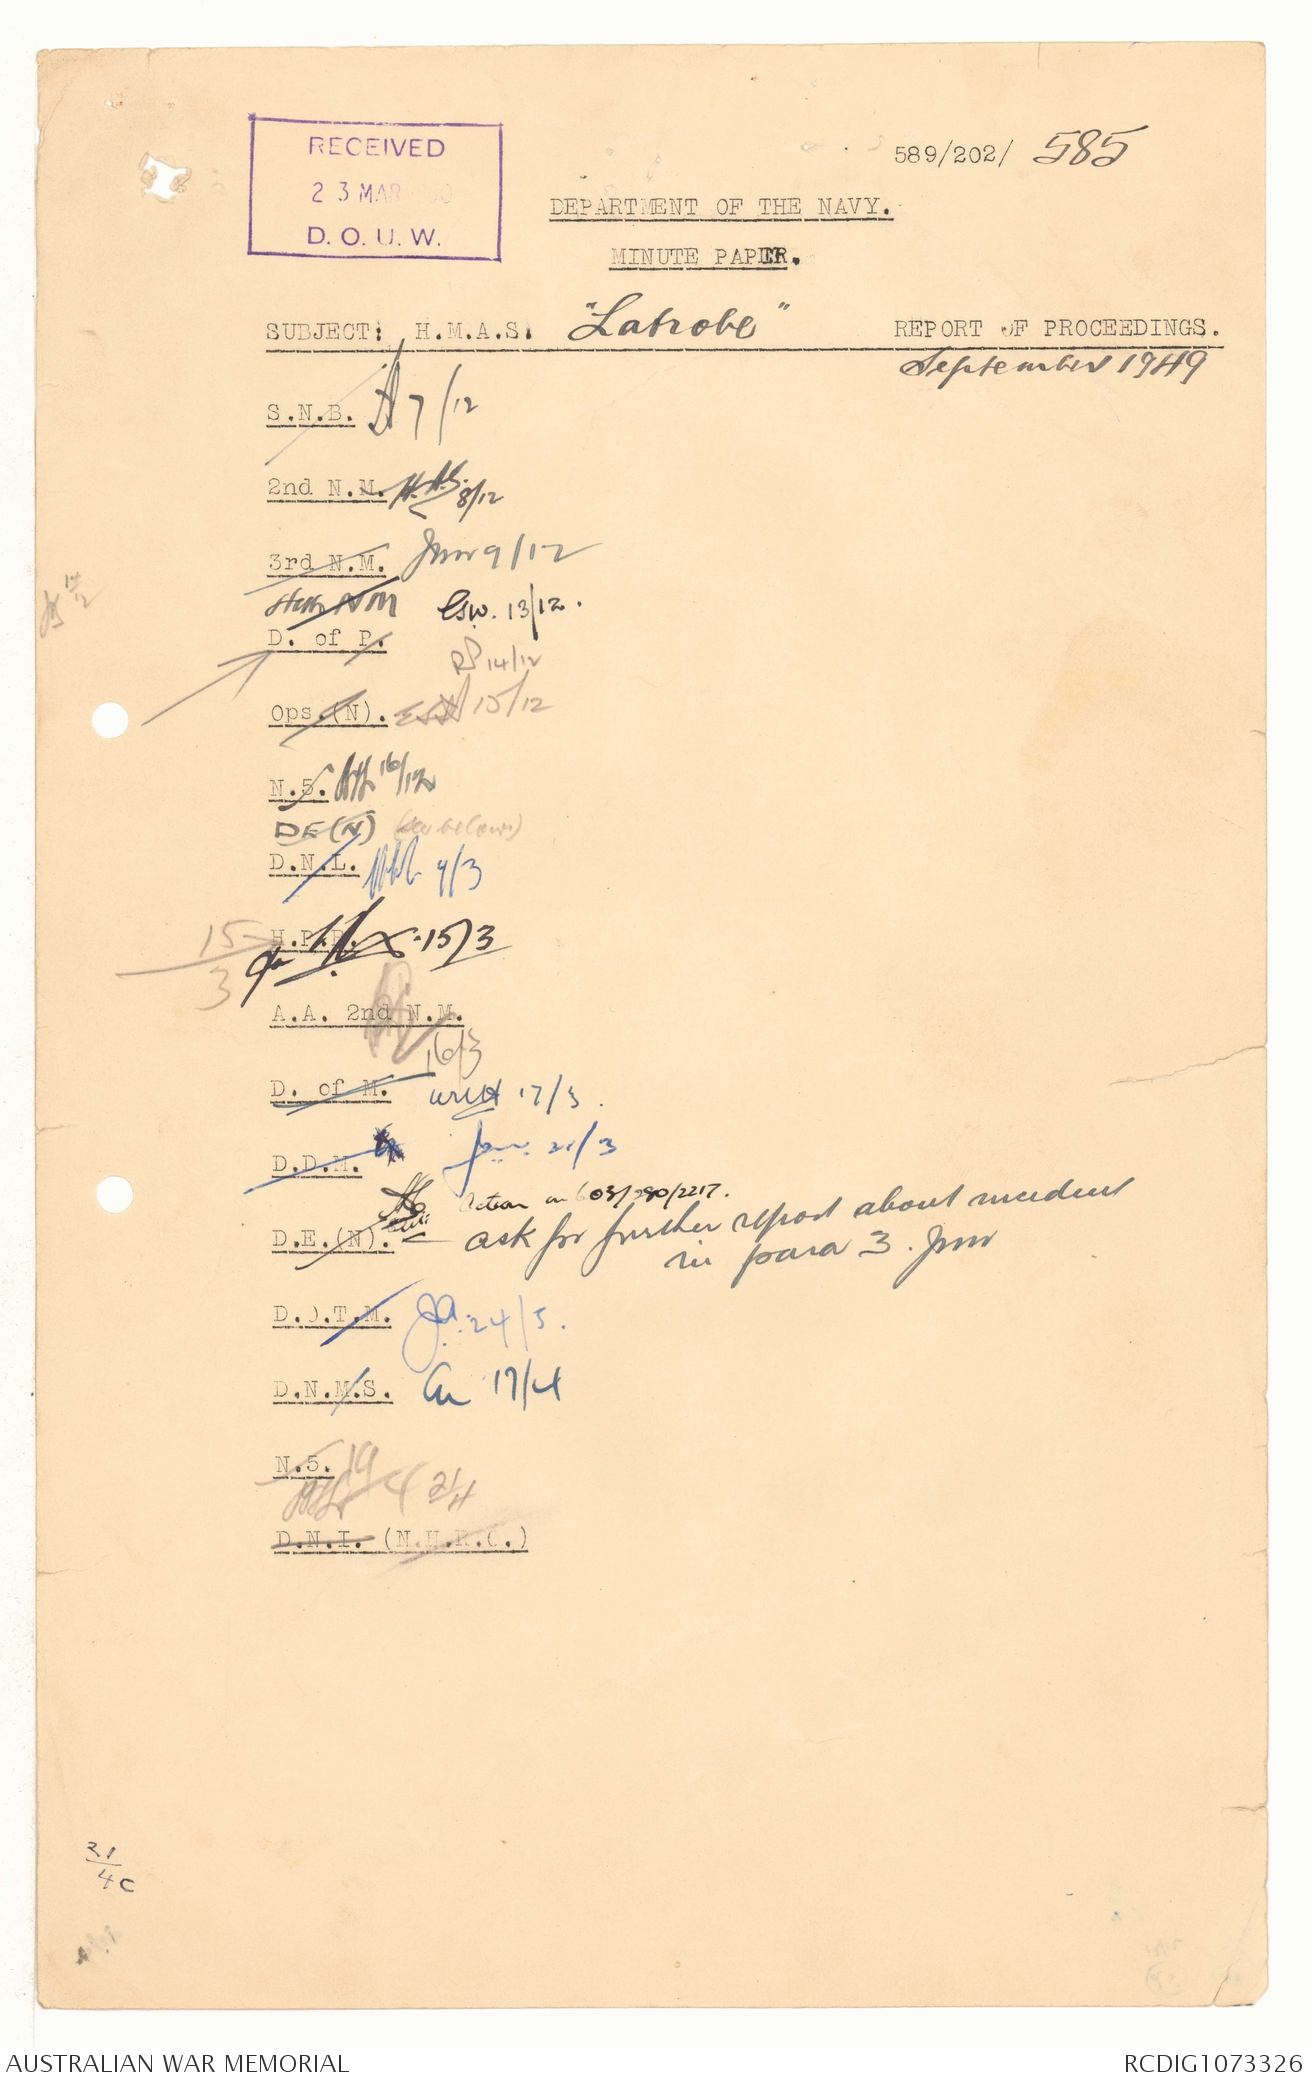 RECEIVED
23 MAR
D. O. U. W.
589/202/ 585
DEPARTMENT OF THE NAVY.
MINUTE PAPER.
SUBJECT: H.M.A.S. "Latrobe" REPORT OF PROCEEDINGS.
September 1949
S.N.B. 7/12
2nd N.M. 8/12
3rd N.M. 9/12
13/12.
14/12
D. of P.
14/12
Ops.(N). 15/12
N.5. 16/12
DE(N) (See below)
D.N.L. 9/3
15/3
15/3
A.A. 2nd N.M.
16/3
D. of M. 17/3.
D.D.M. 21/3
Action on 603/280/2217.
D.E.(N). ask for further report about incident
in para 3.
D.O.T.M. 24/3.
D.N.M.S. 17/4
N.5. 19/4 21/4
D.N.I. (N.H.R.O.)
21/4c
AUSTRALIAN WAR MEMORIAL
RCDIG1073326